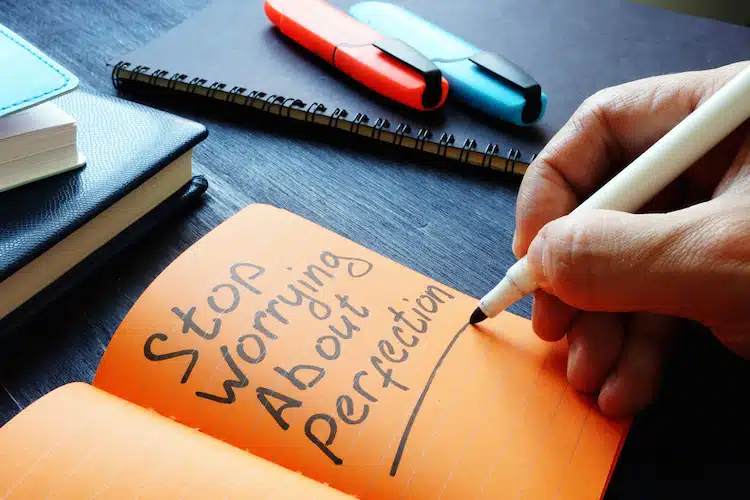 Stop
Worrying
About
Perfection